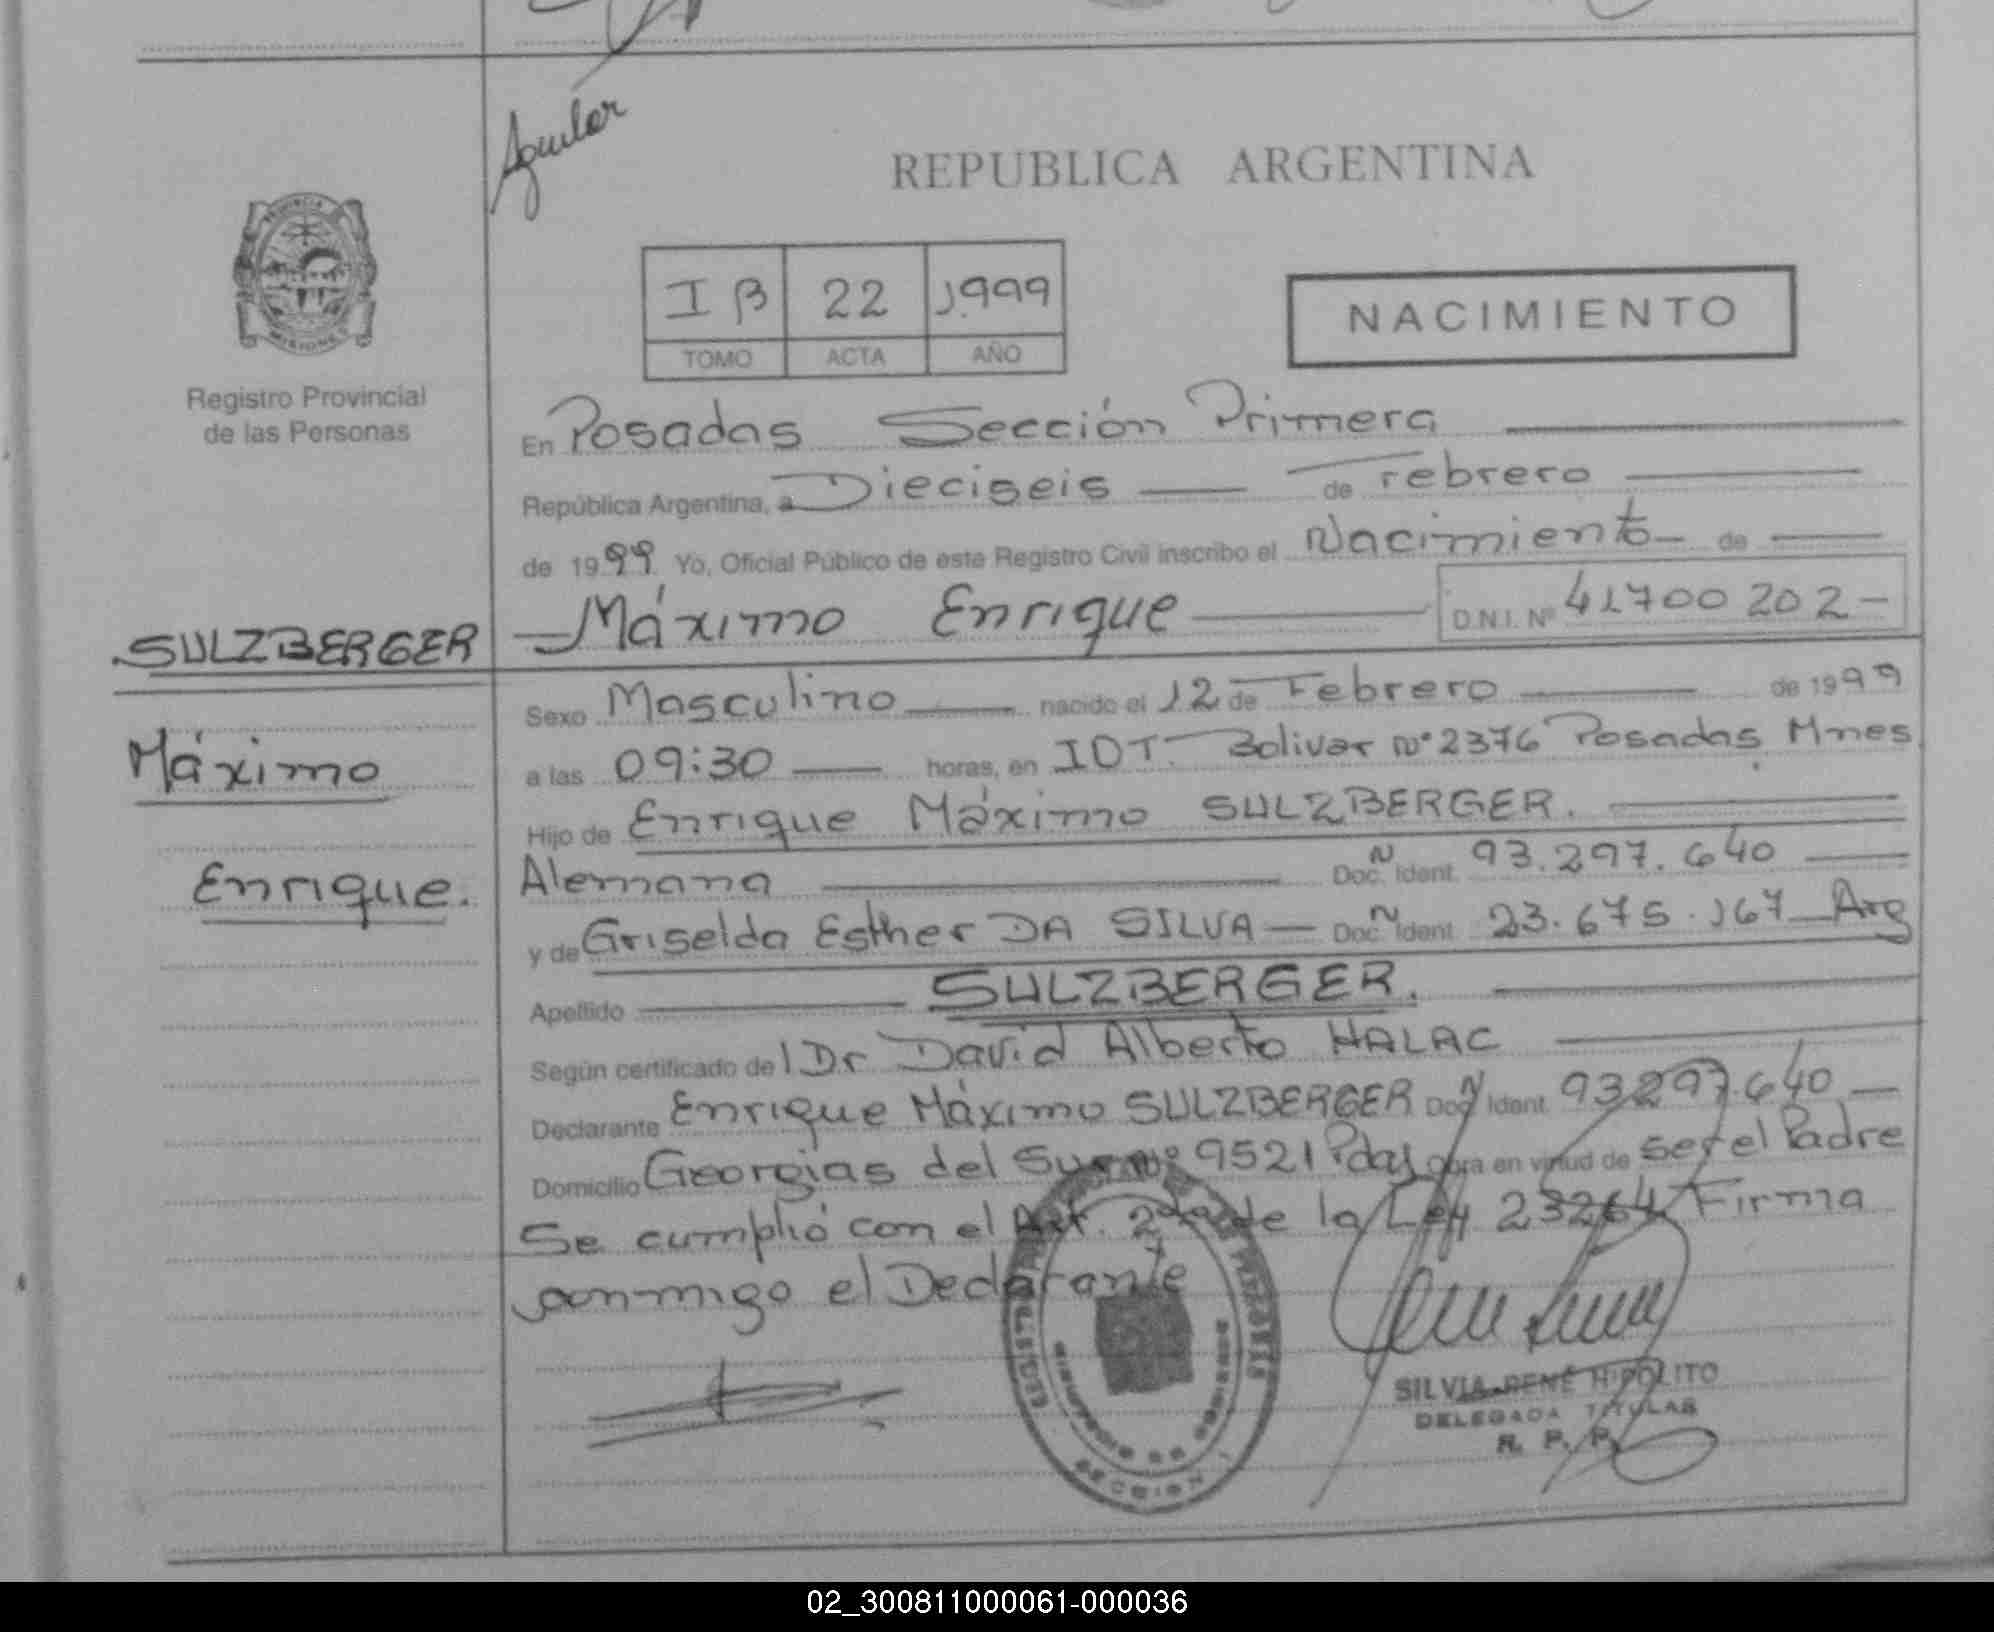 Aguilar
REPUBLICA ARGENTINA
PROVINCIA
MISIONES
Registro Provincial
de las Personas
I B 22 1.999
TOMO ACTA AÑO
NACIMIENTO
En Posadas Sección Primera
República Argentina, a Dieciseis de Febrero
de 1999 Yo, Oficial Público de este Registro Civil inscribo el Nacimiento de
Máximo Enrique D.N.I. Nº 41700 202
SULZBERGER
Máximo
Enrique.
Sexo Masculino nacido el 12 de Febrero de 1999
a las 09:30 horas, en IOT. Bolivar Nº 2376 Posadas Mnes
Hijo de Enrique Máximo SULZBERGER.
Alemana Doc. Ident. 93.297.640
y de Griselda Esther DA SILVA Doc. Ident. 23.675.167 Arg
Apellido SULZBERGER.
Según certificado del Dr David Alberto HALAC
Declarante Enrique Máximo SULZBERGER Doc. Ident. 93297.640
Domicilio Georgias del Sur nº 9521 Pdas obra en virtud de ser el Padre
Se cumplió con el Art. 2do de la Ley 23264 Firma
conmigo el Declarante
SECCION 1
SILVIA RENÉ HIPOLITO
DELEGADA TITULAR
R. P. P.
02_300811000061-000036